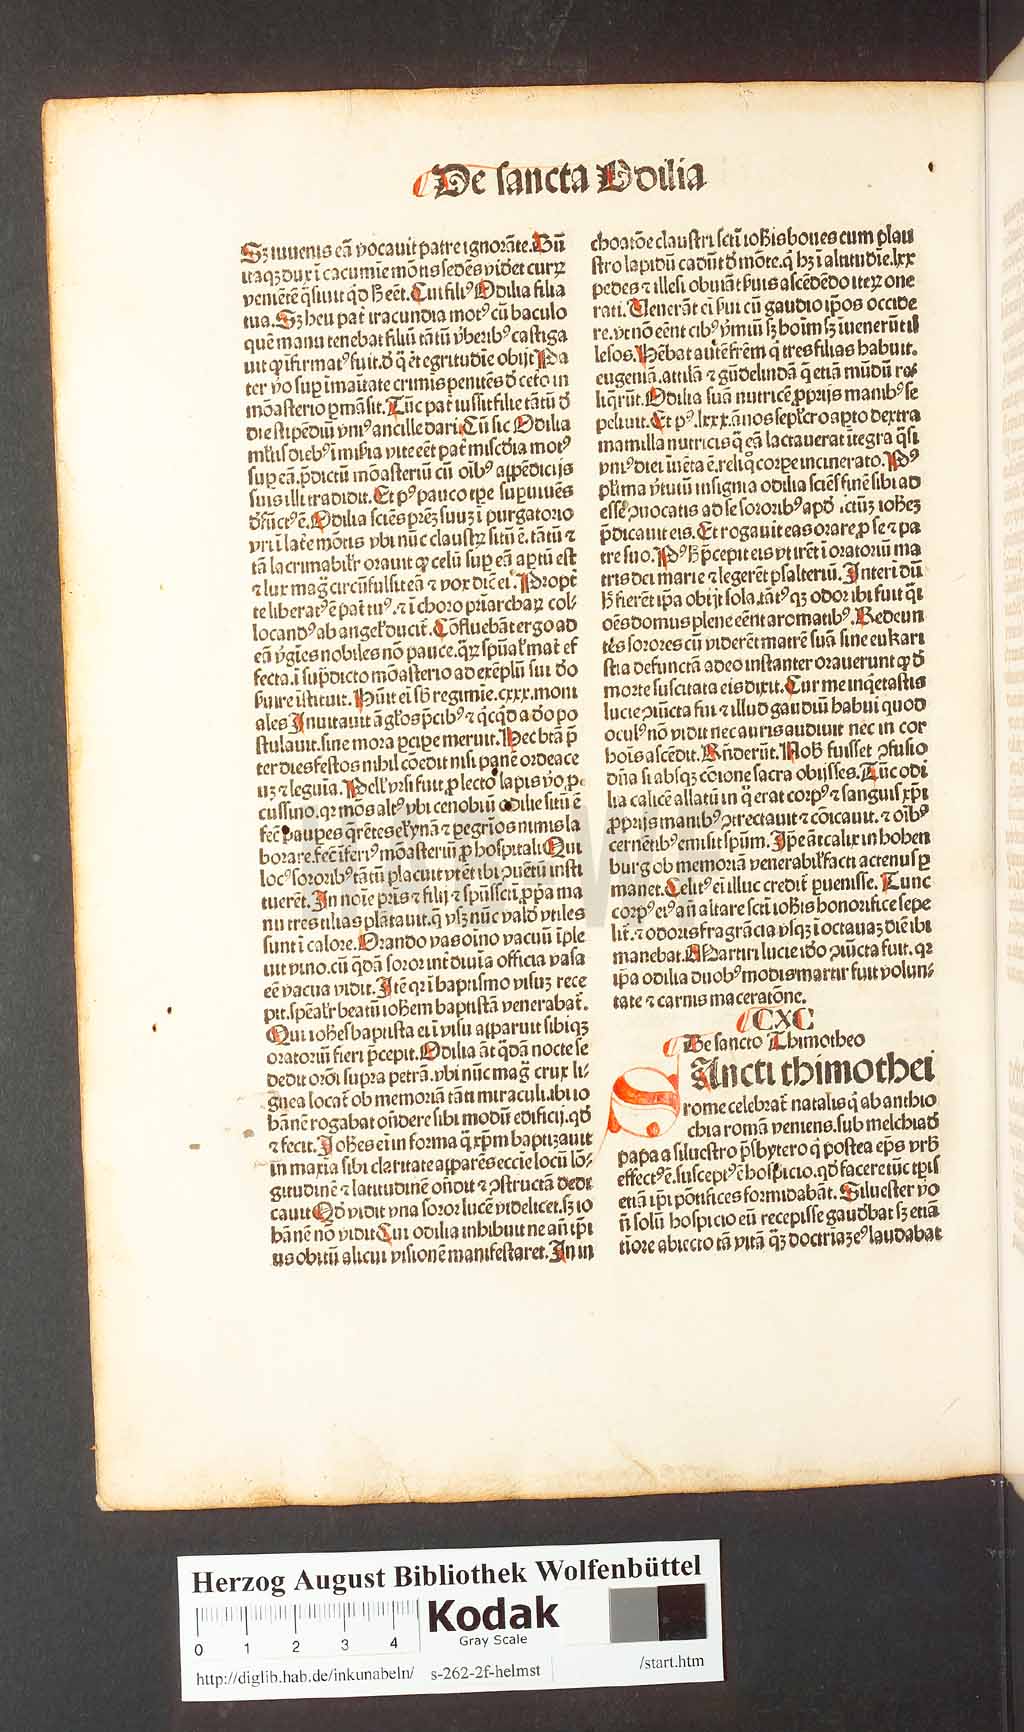 De sancta Odilia
Sz iuuenis eā vocauit patre ignorāte. Cū
itaqz dux ī cacumīe mōtis sedēs videt currū
veniētē q̄siuit qd H eēt. Cui filiꝰ Odilia filia
tua. Sz heu pat̄ iracundia motꝰ cū baculo
quē manu tenebat filiū tātū v̄beribꝰ castiga
uit qꝫ īfirmatꝰ fuit. ⁊ q̄ ēt egritudīe obijt Pa
ter vo sup īmanitate crimis penitēs d ceto in
mōasterio ꝑmāsit. Tūc pat̄ iussit filie tātū d
die stipēdiū vniꝰ ancille dari. Cū sic Odilia
ml̄tis diebꝰ ī mīa vite eēt pat̄ mis̄cdia motꝰ
sup eā. p̄dictū mōasteriū cū oībꝰ appēdicijs
suis illi tradidit. Et pꝰ pauco tꝑe supuiuēs
dfūctꝰ ē. Odilia sciēs prēz suuz ī purgatorio
vri ī lat̄e mōtis vbi nūc claustꝝ sitū ē. tātū ⁊
tā lacrimabilr̄ orauit qꝫ celū sup eā aptū est
⁊ lux maḡ circūfulsit eā ⁊ vox diē ei. Propt̄
te liberatꝰ ē pat̄ tuꝰ. ⁊ ī choro priarchaꝝ col-
locandꝰ ab angel̄ ducit̄. Cōfluebāt ergo ad
eā v̄gīes nobiles nō pauce. q̄rꝫ spūal̄ mat̄ ef
fecta. ī sup̄dicto mōasterio ad exēplū sui do
ẜuire īstituit. Hūit eī sb regimīe. cxxx. moni
ales Inuitauit āgl̄os p̄cibꝰ ⁊ qcqd a do po
stulauit. sine mora ꝑcipe meruit. Hec btā p̄
ter dies festos nihil cōedit nisi panē ordeace
uz ⁊ leguīa. Pell̄ vrsi fuit ꝓ lecto lapis vo ꝓ
cussino. qꝛ mōs altꝰ vbi cenobiū odilie sitū ē
fec̄ paupes q̄rētes el̄ynā ⁊ ꝑegrīos nimis la
borare. fec̄ īferiꝰ mōasteriū ꝓ hospitali Qui
locꝰ sororibꝰ tātū placuit vt ēt ibi ꝯuētū insti
tuerēt. In noīe pr̄is ⁊ filij ⁊ spūssctī ꝓp̄a ma
nu tres tilias plātauit. q̄ vsqꝫ nūc vald vtiles
sunt ī calore. Orando vas oīno vacuū īple
uit vino. cū q̄dā soror int̄ diuīa officia vasa
eē vacua vidit. Itē qꝛ ī baptismo visuz rece
pit. spēalr̄ beatū iohem baptistā venerabat̄.
Qui iohēs baptista ei ī visu apparuit sibiqꝫ
oratoriū fieri p̄cepit. Odilia āt q̄dā nocte se
dedit orōi supra petrā. vbi nūc maḡ crux li-
gnea locat̄ ob memoriā tāti miraculi. ibi io
hānē rogabat ōndere sibi modū edificij. qd
⁊ fecit. Iohēs eī in forma q̄ xp̄m baptizauit
in maxīa sibi claritate apparēs eccīe locū lō-
gitudinē ⁊ latitudinē ōndit ⁊ ꝯstructā dedi
cauit Qd vidit vna soror lucē videlicet. sz io
hānē nō vidit Cui odilia inhibuit ne añ ip̄i
us obitū alicui visionē manifestaret. In in
choatōe claustri sctī iohīs boues cum plau
stro lapidū cadūt d mōte. q̄ hz ī altitudīe. lxx
pedes ⁊ illesi obuiāt ẜuis ascēdēdo iterꝫ one
rati. Venerāt eī ẜui cū gaudio ip̄os occide
re. vt nō eēnt cibꝰ v̄miū sz hoīm sz īuenerūt il
lesos. Hēbat autē frēm q̄ tres filias habuit.
eugeniā. attilā ⁊ gūdelindā q̄ etiā mūdū re-
liq̄rūt. Odilia suā nutricē ꝓprijs manibꝰ se
peliuit. Et pꝰ. lxxx. ānos sepl̄cro apto dextra
mamilla nutricis q̄ eā lactauerat ītegra q̄si
vniꝰ diei īuēta ē. reliq̄ corpe incinerato. Pꝰ
pl̄ima v̄tutū insignia odilia sciēs finē sibi ad
esse ꝯuocatis ad se sororibꝰ apd sctūz iohēz
p̄dicauit eis. Et rogauit eas orare ꝓ se ⁊ pa
tre suo. Pꝰ H p̄cepit eis vt irēt ī oratoriū ma
tris dei marie ⁊ legerēt psalteriū. Interī dū
H fierēt ip̄a obijt sola. tātꝰ qꝫ odor ibi fuit q̄si
oēs domus plene eēnt aromatibꝰ. Redeun
tes sorores cū viderēt matrē suā sine eukari
stia defunctā adeo instanter orauerunt qꝫ d
morte suscitata eis dixit. Cur me inq̄etastis
lucie ꝯiūcta fui ⁊ illud gaudiū habui quod
oculꝰ nō vidit nec auris audiuit nec in cor
hoīs ascēdit. Rñderūt. Nob̄ fuisset ꝯfusio
dña si absqꝫ cōione sacra obijsses. Tūc odi
lia calicē allatū in q̄ erat corpꝰ ⁊ sanguis xp̄i
ꝓprijs manibꝰ ꝯtrectauit ⁊ cōicauit. ⁊ oībꝰ
cernētibꝰ emisit spūm. Ip̄e āt calix in hohen
burg ob memoriā venerabil̄ facti actenus ꝑ
manet. Celitꝰ eī illuc credit̄ ꝑuenisse. Tunc
corpꝰ eiꝰ añ altare sctī iohīs honorifice sepe
lit̄. ⁊ odoris fragrācia vsqꝫ ī octauaꝫ diē ibi
manebat. Martiri lucie ido ꝯiūcta fuit. qꝛ
ip̄a odilia duobꝰ modis martir fuit volun-
tate ⁊ carnis maceratōne.
CXC
De sancto Thimotheo
SAncti thimothei
rome celebrat̄ natalis q̄ ab anthio
chia romā veniens. sub melchiad
papa a siluestro p̄sbytero q̄ postea ep̄s vrb̄
effectꝰ ē. susceptꝰ ē hospicio. qd facere tūc tp̄is
etiā ip̄i pōtifices formidabāt. Siluester vo
n̄ solū hospicio eū recepisse gaudbat sz etiā
tiōre abiecto tā vitā q̄ꝫ doctrīaz eꝰ laudabat
Herzog August Bibliothek Wolfenbüttel
0 1 2 3 4
Kodak
Gray Scale
http://diglib.hab.de/inkunabeln/ s-262-2f-helmst /start.htm